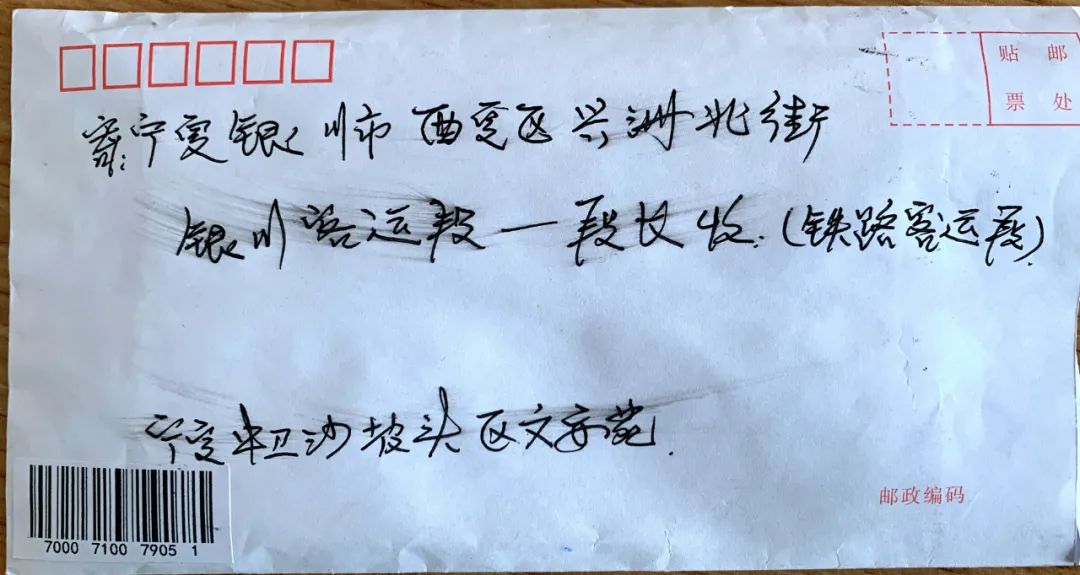 贴 邮
票 处
寄:宁夏银川市西夏区兴洲北街
银川客运段一段长收:(铁路客运段)
宁夏中卫沙坡头区文家苑.
7000 7100 7905 1
邮政编码